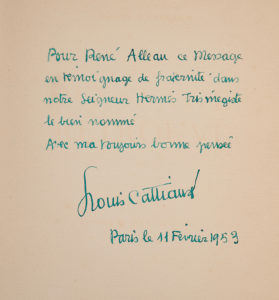 Pour René Alleau ce Message
en témoignage de fraternité dans
notre Seigneur Hermès Trismégiste
le bien nommé
Avec ma toujours bonne pensée
Louis Cattiaux
Paris le 11 Février 1953